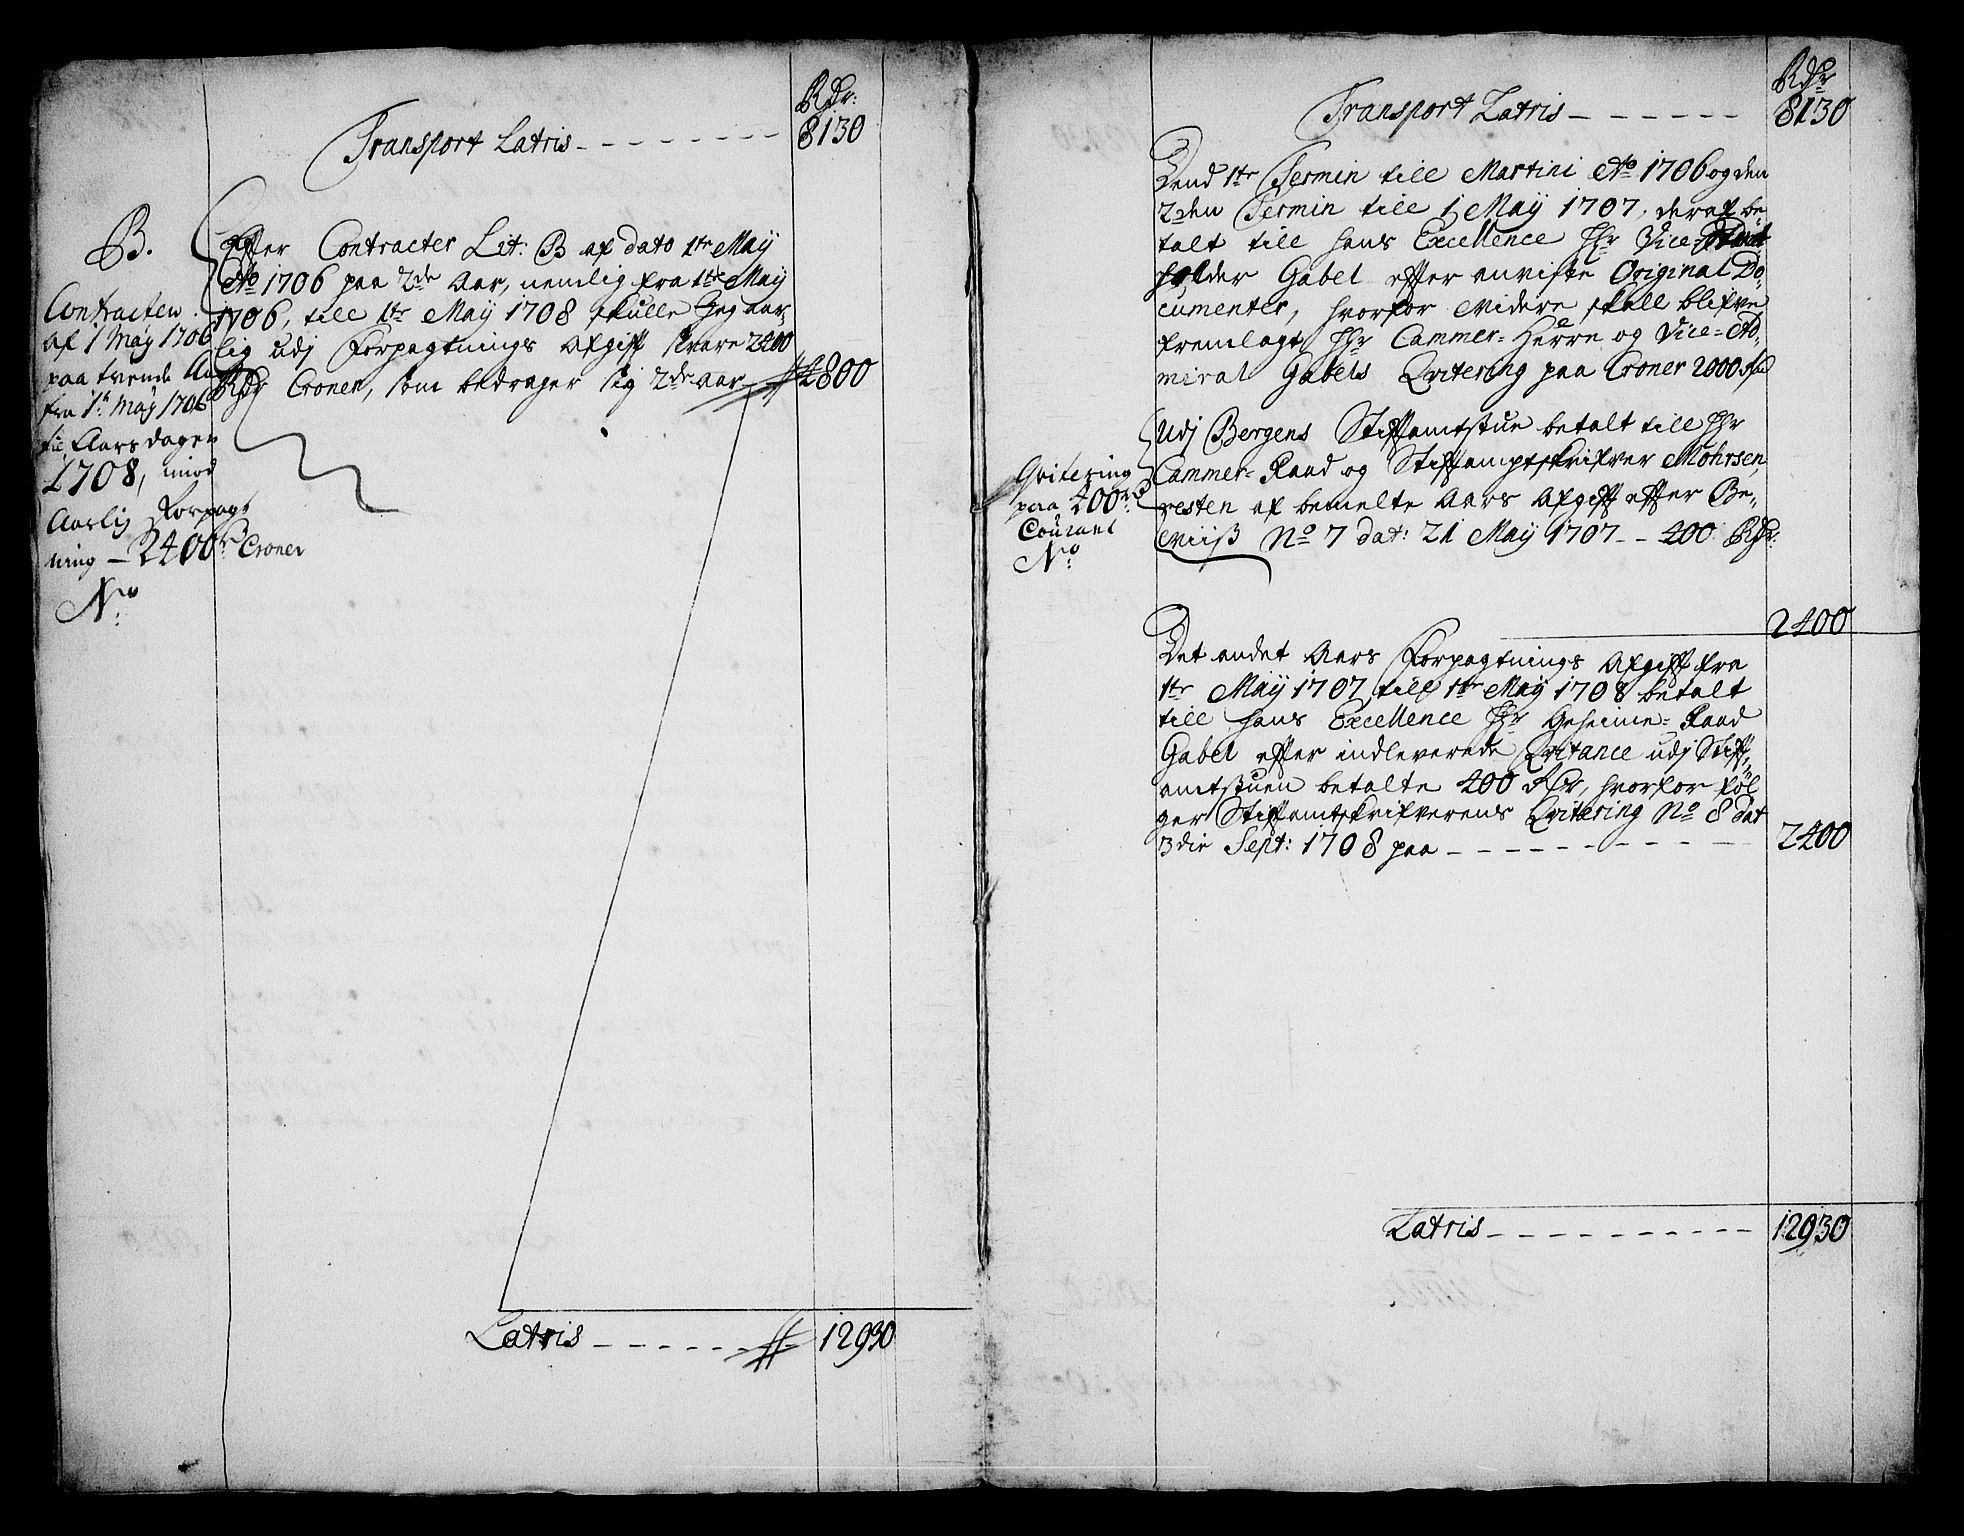 Rdr:
Transport Latris - - - - - - - 8130
B.
Contracten
af 1 Maÿ 1706
paa tvende Aar
fra 1te Maÿ 1706
til Aarsdagen
1708, imod
Aarlig Forpagt
ning - 2400 rd Croner
No:
Efter Contracter Lit: B af dato 1te Maÿ
Ao 1706 paa 2de Aar, nemlig fra 1te Maÿ
1706, till 1te Maÿ 1708 skulle Jeg aar,,
lig udj Forpagtnings Afgift svare 2400
Rdr Croner, som bedrager sig 2de aar - # 4800
Latris - - - - - - - # 12930
Rdr
Transport Latris - - - - - - 8130
Dend 1te Termin till Martini Ao 1706 og den
2den Termin till 1 Maÿ 1707, deraf be-
talt till hans Excellence Hr Vice-Stat
holder Gabel efter anviste Original Do-
cumenter, hvorfor evidere skall blifve
fremlagt, Hr Cammer-Herre og Vice-Ad-
miral Gabels Qvitering paa Croner 2000
Qvitering
paa 400 rd
Courant
No:
Udj Bergens Stiftamtstue betalt till Hr
Cammer-Raad og Stiftamptskrifver Mohrsen
resten af bemelte Aars Afgift efter Be-
viiß No 7 dat: 21 Maÿ 1707 - - 400 Rdr:
2400
Det andet Aars Forpagtnings Afgift fra
1te Maÿ 1707 till 1te Maÿ 1708 betalt
till hans Excellence Hr Geheime-Raad
Gabel efter indleverede Qvitance udj Stift,,
amtstuen betalte 400 Rdr, hvorfor føl
ger Stiftamtskrifverens Qvitering No 8 dat
3die Sept: 1708 paa - - - - - - - - - - 2400
Latris - - - - - - - - - - 12930